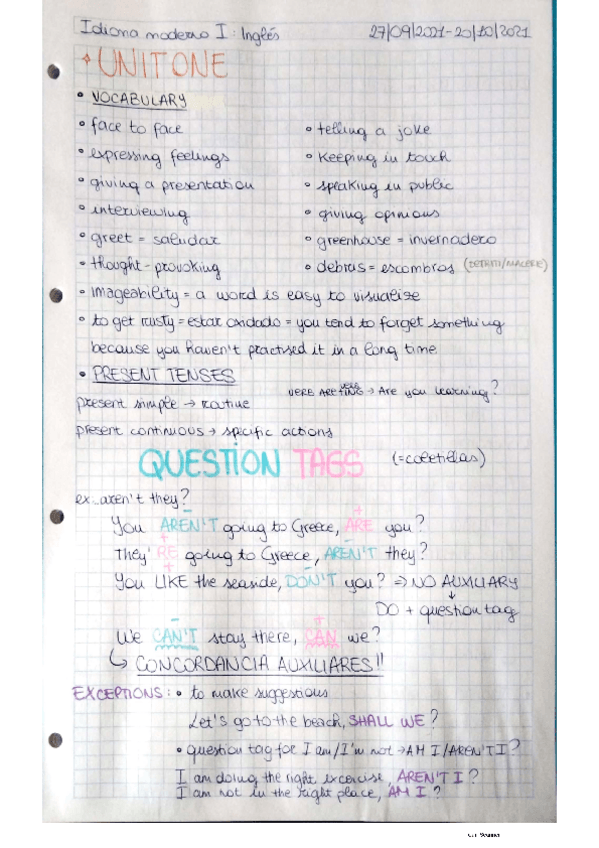 Idioma moderno I: Inglés 27/09/2021-20/10/2021
UNIT ONE
• VOCABULARY
• face to face • telling a joke
• expressing feelings • keeping in touch
• giving a presentation • speaking in public
• interviewing • giving opinions
• greet = saludar • greenhouse = invernadero
• thought-provoking • debris = escombros
• imageability = a word is easy to visualize
• to get rusty = estar oxidado = you tend to forget something
because you haven't practised it in a long time.
• PRESENT TENSES
present simple → routine → Are you learning?
present continuous → specific actions
QUESTION TAGS (=coletillas)
ex: aren't they?
You AREN'T going to Greece, ARE you?
They'RE going to Greece, AREN'T they?
You LIKE the seaside, DON'T you? ⇒ NO AUXILIARY
↓
DO + question tag
We CAN'T stay there, CAN we?
↳ CONCORDANCIA AUXILIARES!!
EXCEPTIONS: • to make suggestions
Let's go to the beach, SHALL WE?
• question tag for I am/I'm not → AM I/AREN'T I?
I am doing the right exercise, AREN'T I?
I am not in the right place, AM I?